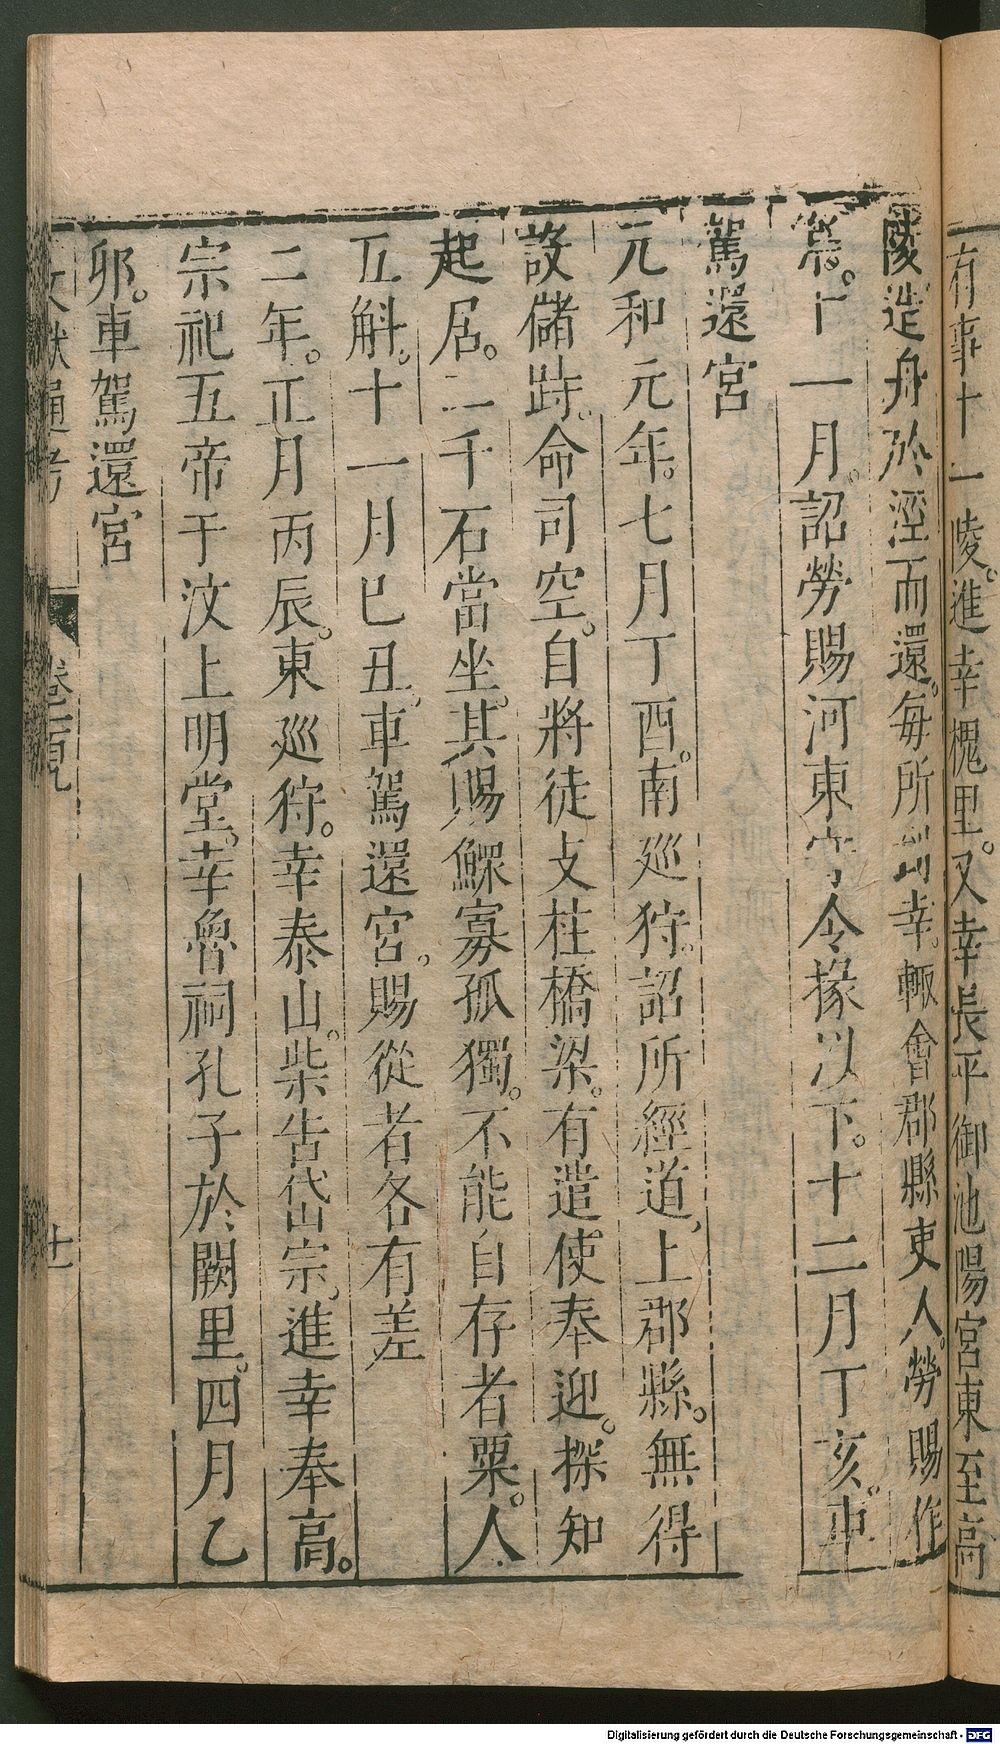 有事十一陵。進幸槐里。又幸長平御池陽宮東至高
陵造舟於涇而還。每所到幸。輒會郡縣吏人。勞賜作
樂。十一月。詔勞賜河東守令掾以下。十二月丁亥。車
駕還宮
元和元年。七月丁酉。南巡狩。詔所經道上郡縣。無得
設儲跱。命司空。自將徒支柱橋梁。有遣使奉迎。探知
起居。二千石當坐。其賜鰥寡孤獨。不能自存者粟。人
五斛。十一月己丑。車駕還宮。賜從者各有差
二年。正月丙辰。東巡狩。幸泰山。柴告岱宗。進幸奉高。
宗祀五帝于汶上明堂。幸魯祠孔子於闕里。四月乙
卯。車駕還宮
文獻通考 卷一百九 十一
Digitalisierung gefördert durch die Deutsche Forschungsgemeinschaft - DFG